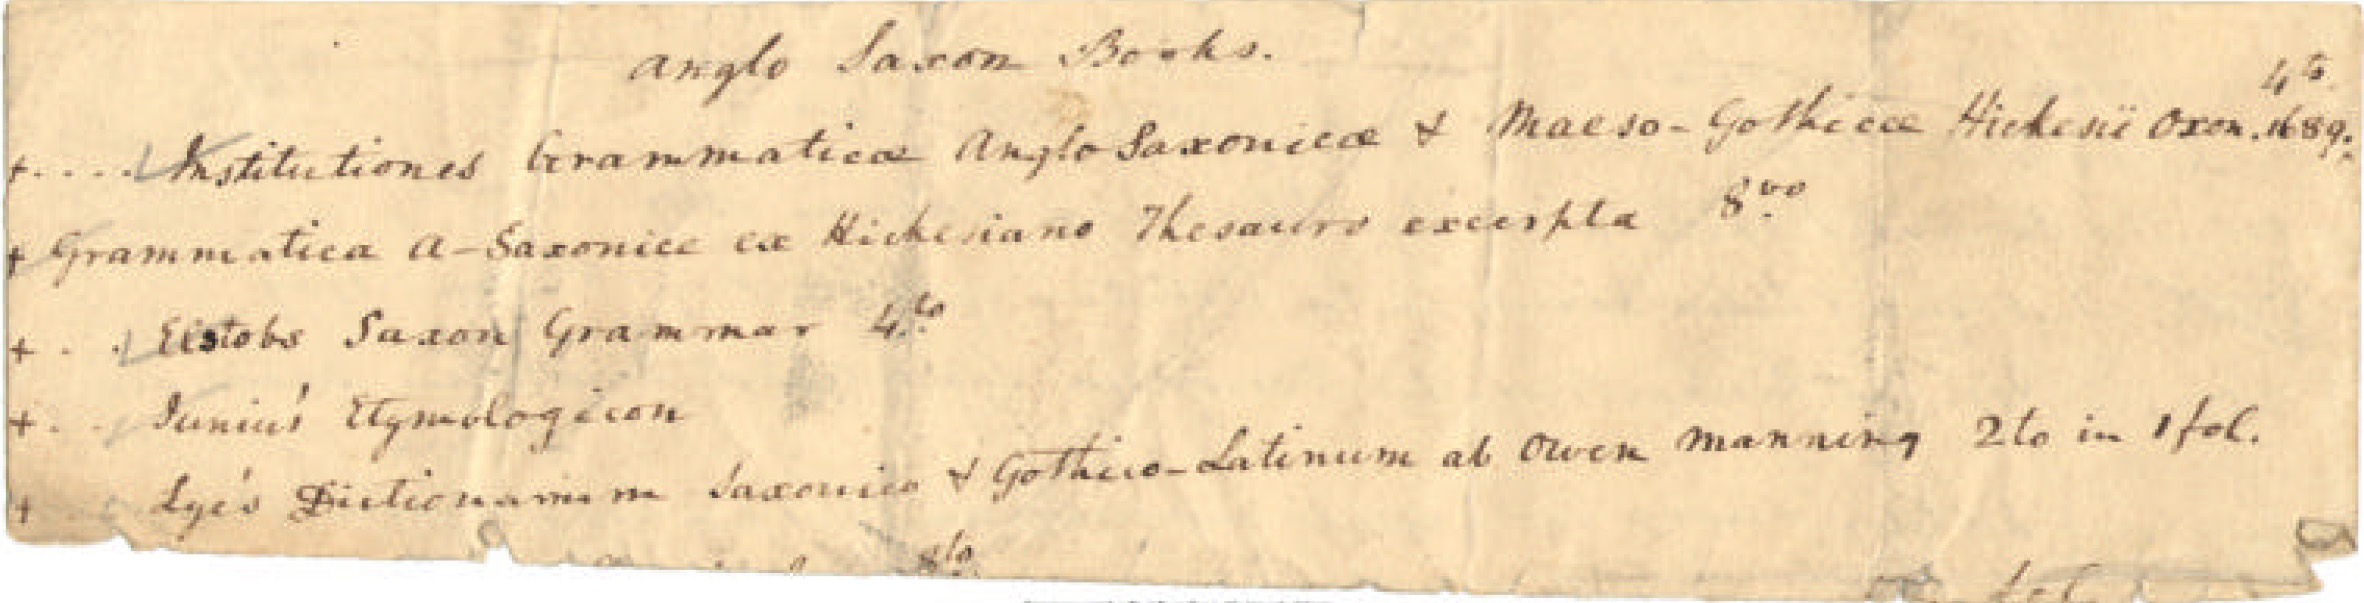 Anglo Saxon Books.
+ .... Institutiones Grammaticæ Anglo Saxonicæ & Maeso-Gothicæ Hickesii Oxon. 1689. 4to.
+ Grammatica A-Saxonice ex Hickesiano Thesauro excerpta 8vo
+ . . . Elstobs Saxon Grammar 4to
+ . . . Junius's Etymologicon
+ . . Lye's Dictionarium Saxonico & Gothico-Latinum ab Owen Manning 2 to in 1 fol.
8to.